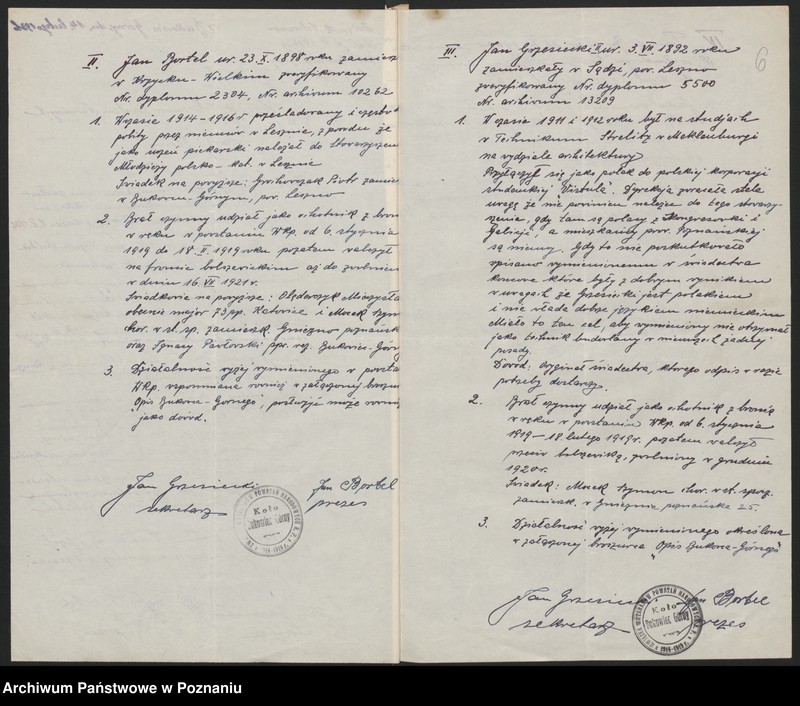 II. Jan Bortel ur. 23.X.1898 roku zamiesz
w Krzycku-Wielkim zweryfikowany
Nr. dyplomu 2304, Nr. archiwum 10262
1. W czasie 1914-1916r prześladowany i często
pobity przez niemców w Lesznie, z powodu że
jako uczeń piekarski należał do Stowarzyszen
Młodzieży polsko-kat. w Lesznie
Świadek na powyższe: Piotr zamiesz
w Bukowcu-Górnym, pow. Leszno
2. Brał czynny udział jako ochotnik z bronią
w ręku w powstaniu Wkp. od 6. stycznia
1919 do 18.II.1919 roku pozatem walczył
na froncie bolszewickim aż do zwolnienia
w dniu 16.VII 1921r.
Świadkowie na powyższe: Olędarczyk Mieczysła
obecnie major 73pp. Katowice i Mocek Szym
chor. w st. sp. zamieszk. Gniezno poznańsk
oraz Ignacy Pawłowski ppr. rez. Bukowiec-Górn
3. Działalność wyżej wymienionego w powsta
Wkp. wspomniana również w załączonej broszur
"Opis Bukowca-Górnego", posłużyć może równie
jako dowód.
Jan Grzesiecki
sekretarz
Jan Bortel
prezes
Koło
Bukowiec Górny
6
III. Jan Grzesiecki II ur. 3.VII.1892 roku
zamieszkały w Sądzi, pow. Leszno
zweryfikowany Nr. dyplomu 5500
Nr. archiwum 13209
1. W czasie 1911 i 1912 roku był na studjach
w Technikum Strelitz w Meklenburgi
na wydziale architektury
Przyłączył się jako polak do polskiej korporacji
studenckiej "Vistula". Dyrekcja zwracała stale
uwagę że nie powinien należeć do tego stowarzy-
szenia, gdyż tam są polacy z Kongresówki i
Galicji, a mieszkańcy prow. Poznańskiej
są niemcy. Gdy to nie poskutkowało
wpisano wymienionemu w świadectwa
końcowe które były z dobrym wynikiem
w uwagach że Grzesiecki jest polakiem
i nie włada dobrze językiem niemieckim
Miało to ten cel, aby wymieniony nie otrzymał
jako technik budowlany w niemczech żadnej
posady.
Dowód: Oryginał świadectwa, którego odpis w razie
potrzeby dostarczę.
2. Brał czynny udział jako ochotnik z bronią
w ręku w powstaniu Wkp. od 6. stycznia
1919-18. lutego 1919r. pozatem walczył
przeciw bolszewiką, zwolniony w grudniu
1920r.
Świadek: Mocek Szymon chor. w st. spocz.
zamieszk. w Gnieźnie poznańska 25.
3. Działalność wyżej wymienionego określona
w załączonej broszurce "Opis Bukowca-Górnego"
Jan Grzesiecki
sekretarz
Jan Bortel
prezes
Koło
Bukowiec Górny
Archiwum Państwowe w Poznaniu